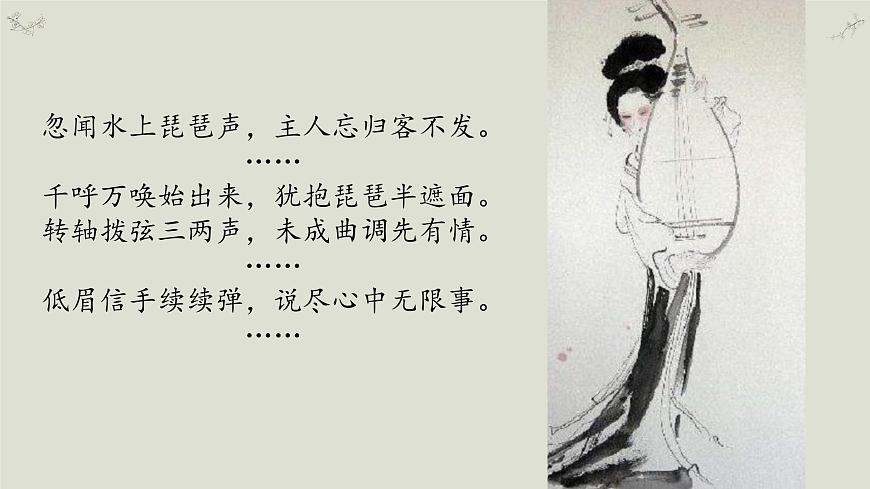 忽闻水上琵琶声，主人忘归客不发。
……
千呼万唤始出来，犹抱琵琶半遮面。
转轴拨弦三两声，未成曲调先有情。
……
低眉信手续续弹，说尽心中无限事。
……